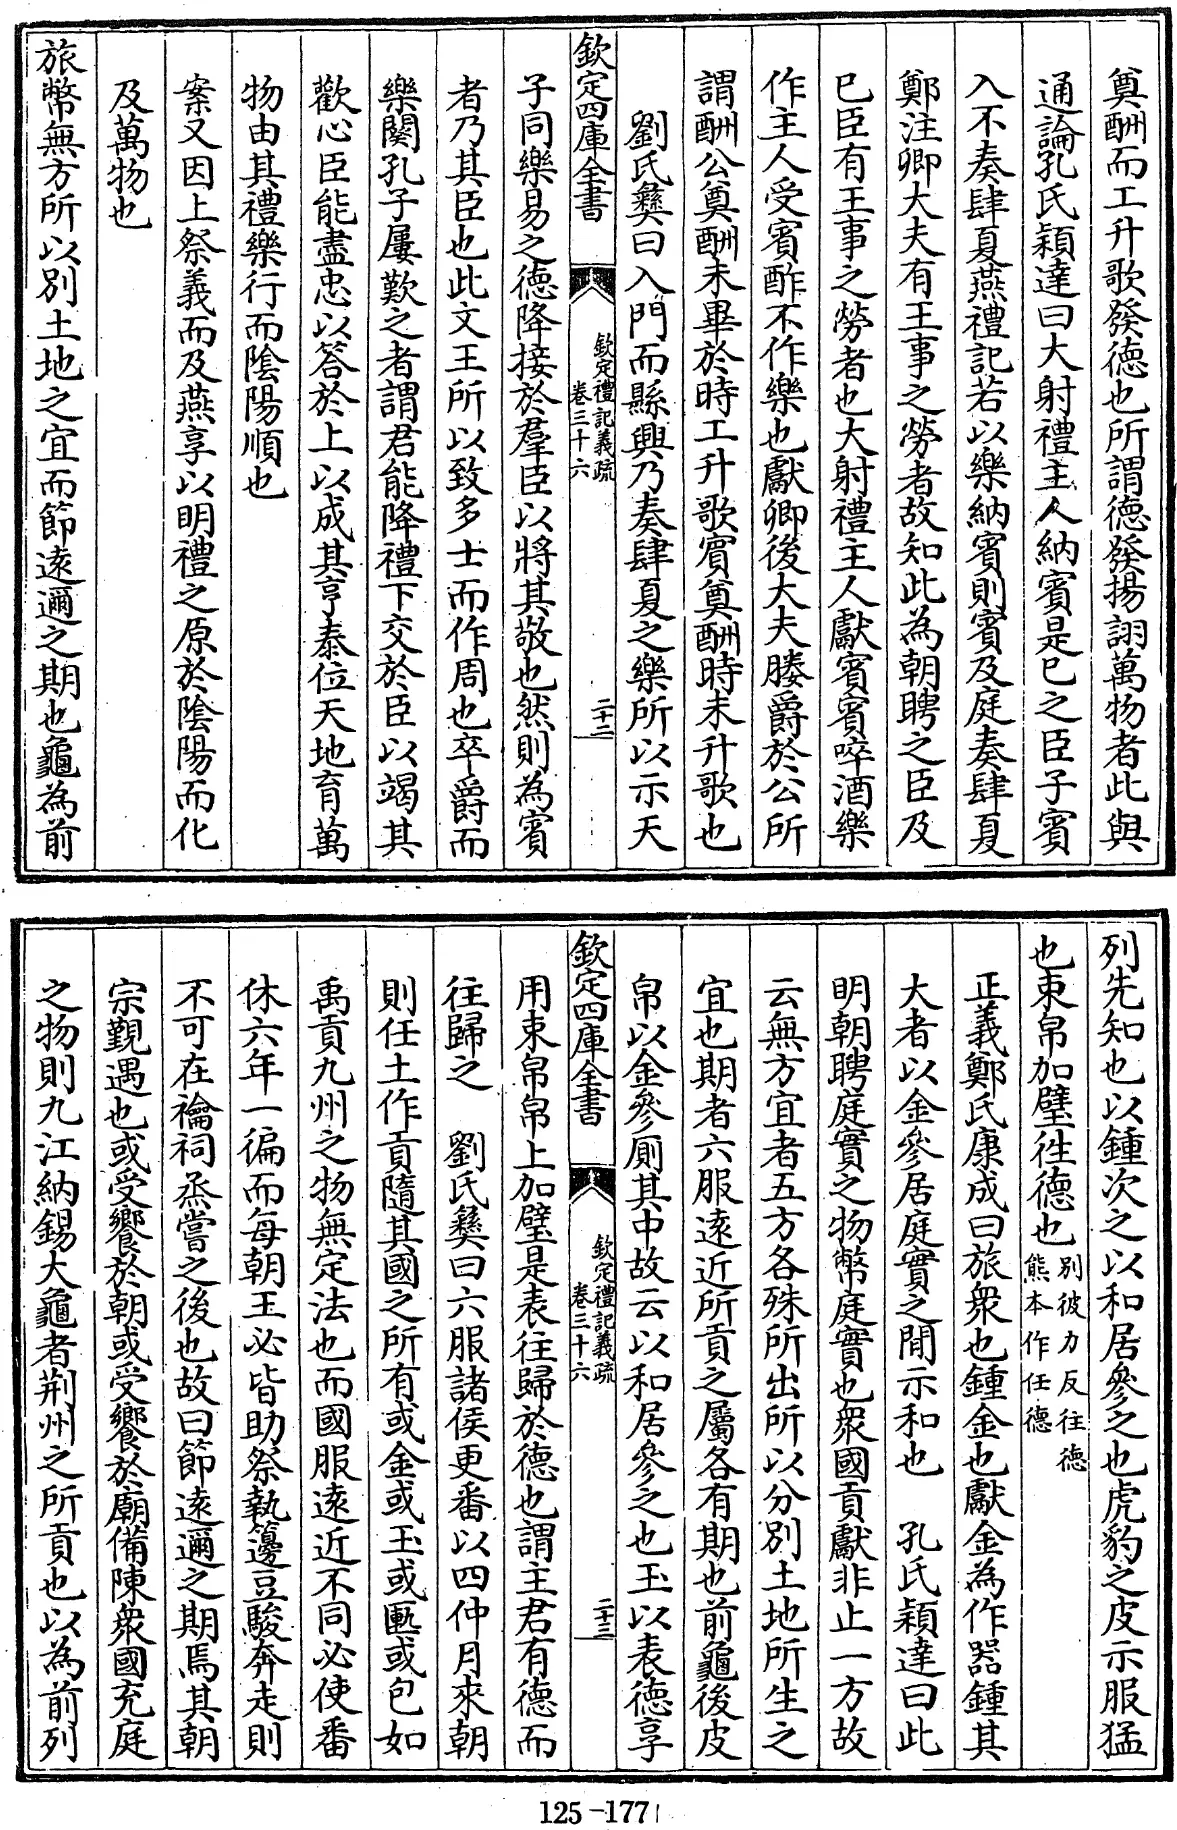 奠酬而工升歌發德也所謂德發揚詡萬物者此與
通論孔氏穎達曰大射禮主人納賓是已之臣子賓
入不奏肆夏燕禮記若以樂納賓則賓及庭奏肆夏
鄭注卿大夫有王事之勞者故知此為朝聘之臣及
已臣有王事之勞者也大射禮主人獻賓賓啐酒樂
作主人受賓酢不作樂也獻卿後大夫媵爵於公所
謂酬公奠酬未畢於時工升歌賓奠酬時未升歌也
劉氏彝曰入門而縣興乃奏肆夏之樂所以示天
欽定四庫全書
欽定禮記義疏
卷三十六
二十二
子同樂易之德降接於羣臣以將其敬也然則為賓
者乃其臣也此文王所以致多士而作周也卒爵而
樂闋孔子屢歎之者謂君能降禮下交於臣以竭其
歡心臣能盡忠以答於上以成其亨泰位天地育萬
物由其禮樂行而陰陽順也
案又因上祭義而及燕享以明禮之原於陰陽而化
及萬物也
旅幣無方所以別土地之宜而節遠邇之期也龜為前
列先知也以鍾次之以和居參之也虎豹之皮示服猛
也束帛加璧往德也別彼力反往德
熊本作任德
正義鄭氏康成曰旅衆也鍾金也獻金為作器鍾其
大者以金參居庭實之間示和也 孔氏穎達曰此
明朝聘庭實之物幣庭實也衆國貢獻非止一方故
云無方宜者五方各殊所出所以分別土地所生之
宜也期者六服遠近所貢之屬各有期也前龜後皮
帛以金參厠其中故云以和居參之也玉以表德享
欽定四庫全書
欽定禮記義疏
卷三十六
二十三
用束帛帛上加璧是表往歸於德也謂主君有德而
往歸之 劉氏彝曰六服諸侯更番以四仲月來朝
則任土作貢隨其國之所有或金或玉或匭或包如
禹貢九州之物無定法也而國服遠近不同必使番
休六年一徧而每朝王必皆助祭執籩豆駿奔走則
不可在禴祠烝嘗之後也故曰節遠邇之期焉其朝
宗覲遇也或受饗於朝或受饗於廟備陳衆國充庭
之物則九江納錫大龜者荆州之所貢也以為前列
125-177